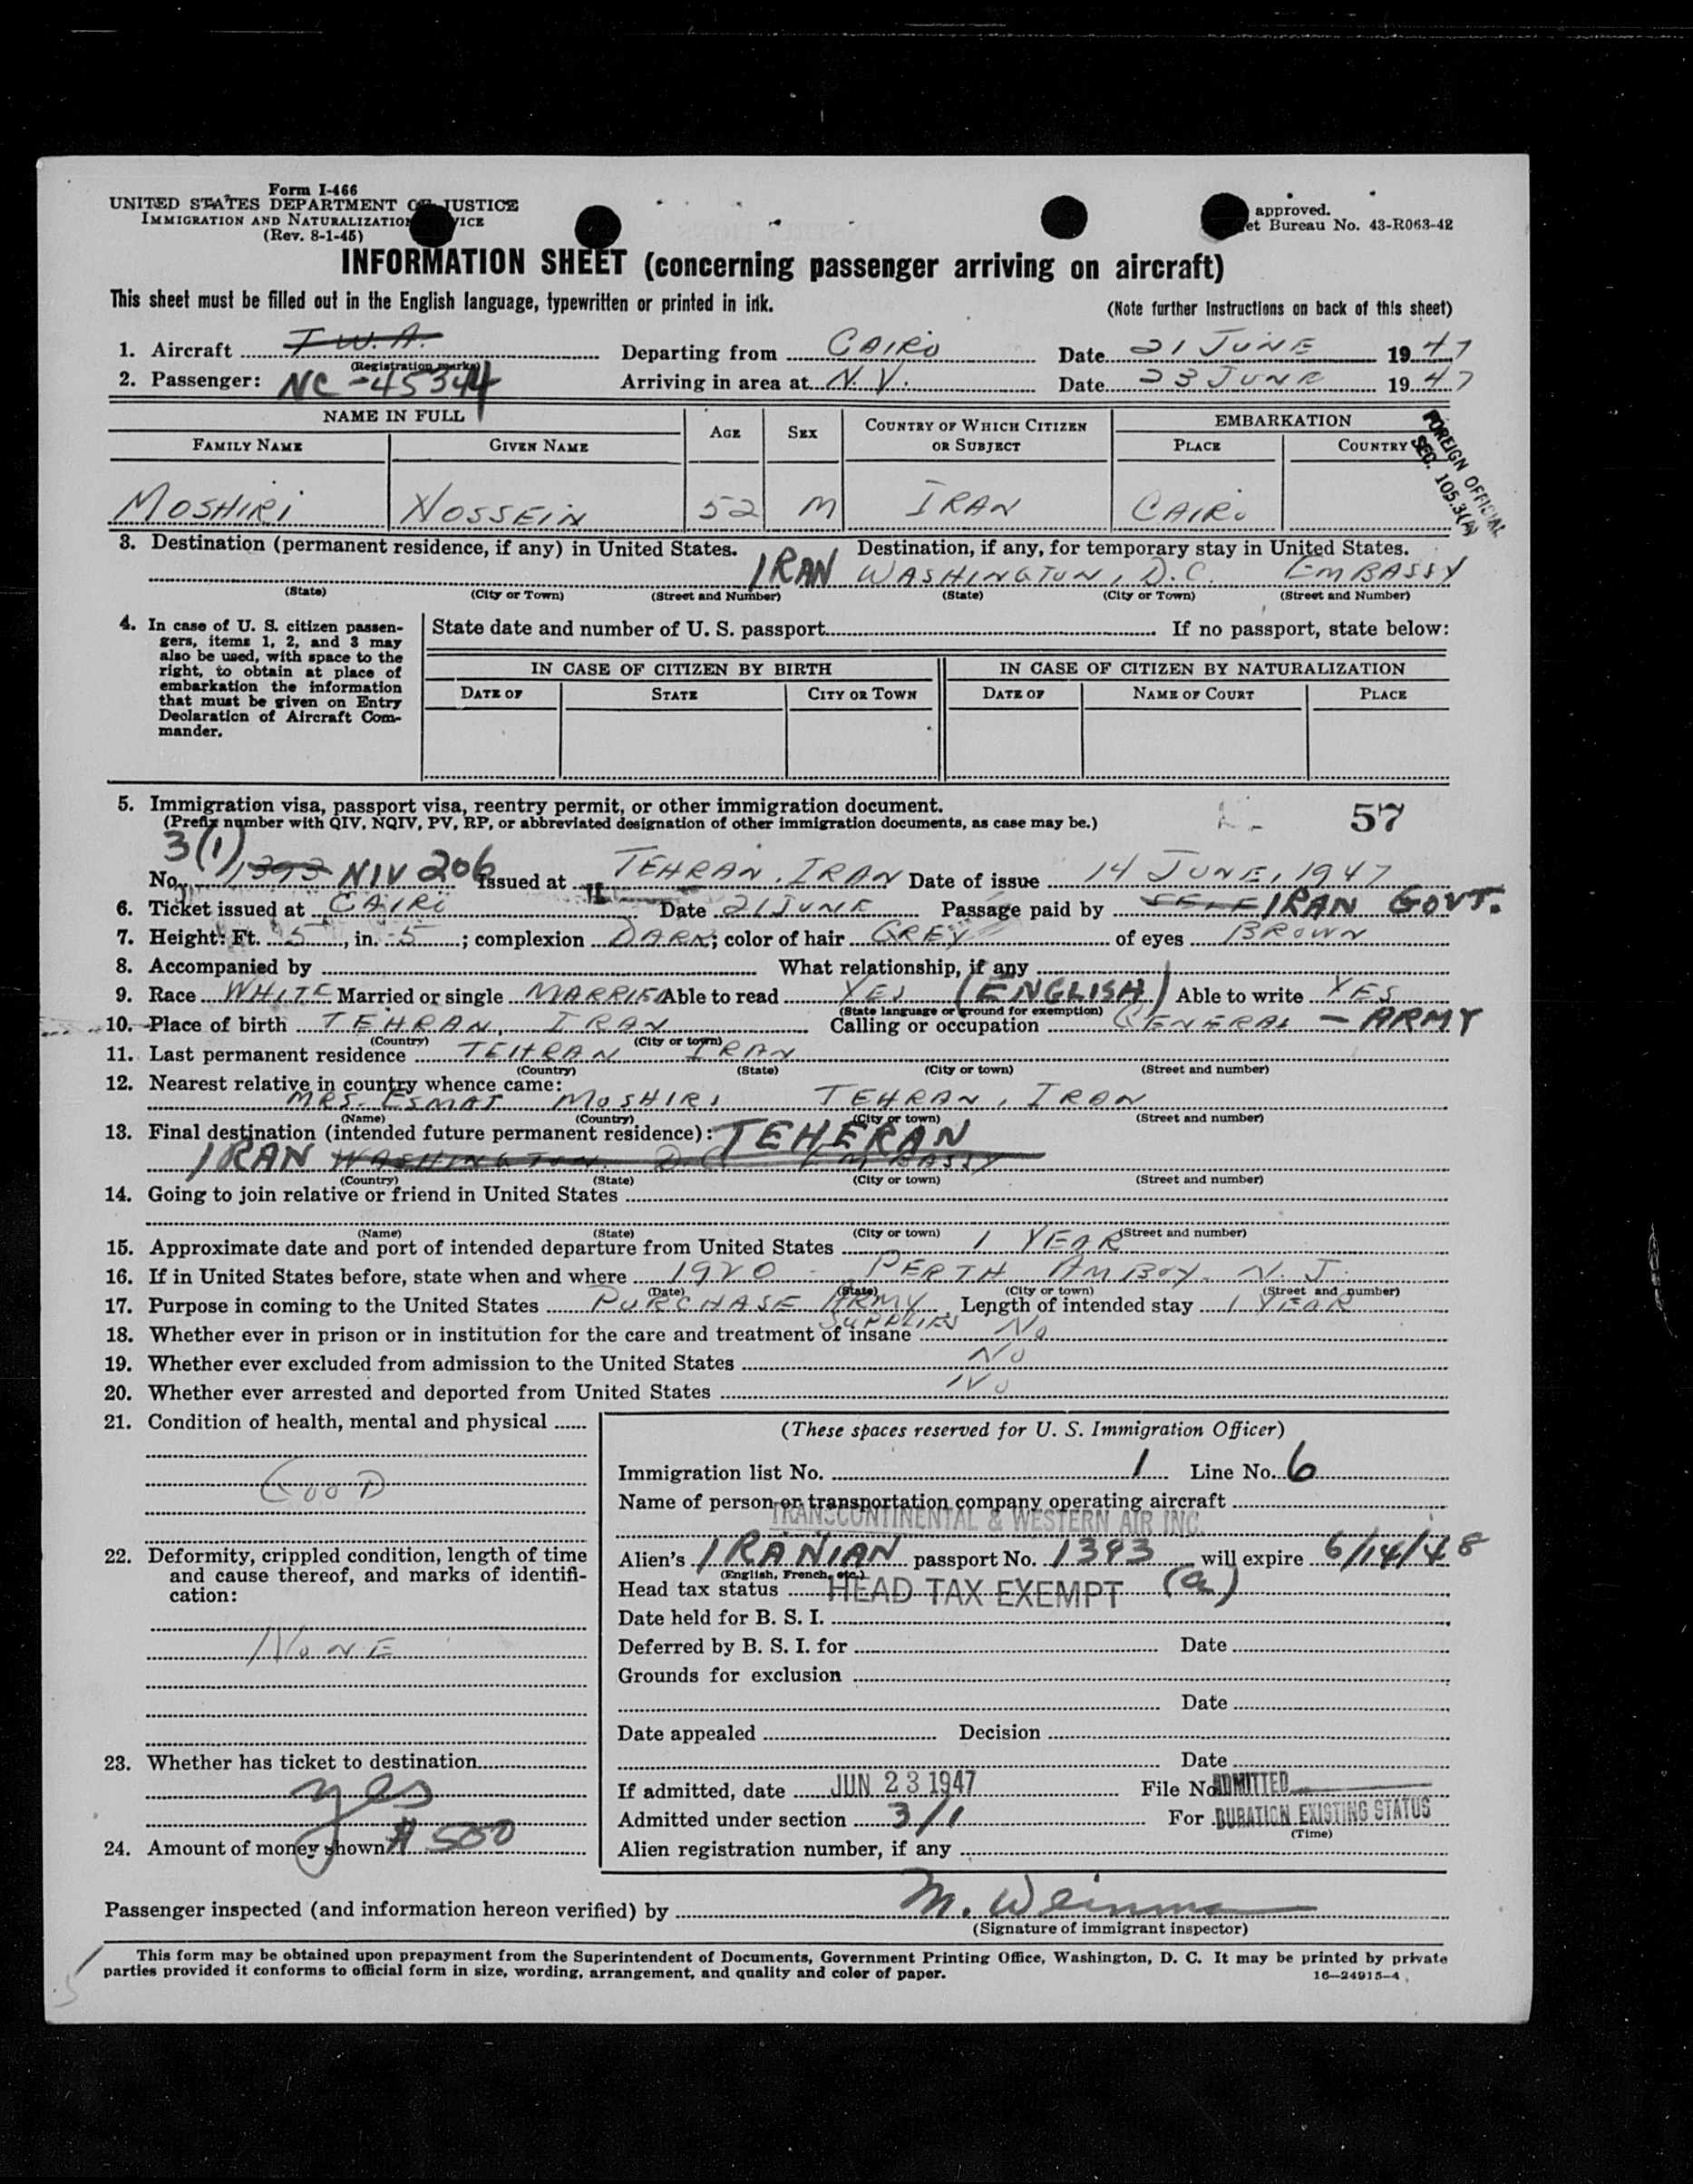 Form I-466
UNITED STATES DEPARTMENT OF JUSTICE
IMMIGRATION AND NATURALIZATION SERVICE
(Rev. 8-1-45)
approved.
et Bureau No. 43-R063-42
INFORMATION SHEET (concerning passenger arriving on aircraft)
This sheet must be filled out in the English language, typewritten or printed in ink.
(Note further instructions on back of this sheet)
1. Aircraft T.W.A. Departing from CAIRO Date 21 JUNE 1947
(Registration marks)
2. Passenger: NC-45344 Arriving in area at N.Y. Date 23 JUNE 1947
NAME IN FULL AGE SEX COUNTRY OF WHICH CITIZEN OR SUBJECT EMBARKATION
FAMILY NAME GIVEN NAME PLACE COUNTRY
FOREIGN OFFICIAL
SEC. 105.3(A)
MOSHIRI HOSSEIN 52 M IRAN CAIRO
3. Destination (permanent residence, if any) in United States. Destination, if any, for temporary stay in United States.
IRAN WASHINGTON, D.C. EMBASSY
(State) (City or Town) (Street and Number) (State) (City or Town) (Street and Number)
4. In case of U. S. citizen passen-
gers, items 1, 2, and 3 may
also be used, with space to the
right, to obtain at place of
embarkation the information
that must be given on Entry
Declaration of Aircraft Com-
mander.
State date and number of U. S. passport If no passport, state below:
IN CASE OF CITIZEN BY BIRTH IN CASE OF CITIZEN BY NATURALIZATION
DATE OF STATE CITY OR TOWN DATE OF NAME OF COURT PLACE
5. Immigration visa, passport visa, reentry permit, or other immigration document.
(Prefix number with QIV, NQIV, PV, RP, or abbreviated designation of other immigration documents, as case may be.)
57
3(1)
No. 1393 NIV 206 Issued at TEHRAN, IRAN Date of issue 14 JUNE, 1947
6. Ticket issued at CAIRO Date 21 JUNE Passage paid by SELF IRAN GOVT.
7. Height: Ft. 5, in. 5; complexion DARK; color of hair GREY of eyes BROWN
8. Accompanied by What relationship, if any
9. Race WHITE Married or single MARRIED Able to read YES (ENGLISH) Able to write YES
(State language or ground for exemption)
10. Place of birth TEHRAN, IRAN Calling or occupation GENERAL - ARMY
(Country) (City or town)
11. Last permanent residence TEHRAN IRAN
(Country) (State) (City or town) (Street and number)
12. Nearest relative in country whence came:
MRS. ESMAT MOSHIRI TEHRAN, IRAN
(Name) (Country) (City or town) (Street and number)
13. Final destination (intended future permanent residence): TEHERAN
IRAN WASHINGTON D.C. EMBASSY
(Country) (State) (City or town) (Street and number)
14. Going to join relative or friend in United States
(Name) (State) (City or town) (Street and number)
15. Approximate date and port of intended departure from United States 1 YEAR
16. If in United States before, state when and where 1920 - PERTH AMBOY. N.J.
(Date) (State) (City or town) (Street and number)
17. Purpose in coming to the United States PURCHASE ARMY SUPPLIES, Length of intended stay 1 YEAR
18. Whether ever in prison or in institution for the care and treatment of insane No
19. Whether ever excluded from admission to the United States No
20. Whether ever arrested and deported from United States No
21. Condition of health, mental and physical
GOOD
22. Deformity, crippled condition, length of time
and cause thereof, and marks of identifi-
cation:
NONE
23. Whether has ticket to destination
yes
24. Amount of money shown $ 500
(These spaces reserved for U. S. Immigration Officer)
Immigration list No. 1 Line No. 6
Name of person or transportation company operating aircraft
TRANSCONTINENTAL & WESTERN AIR INC.
Alien's IRANIAN passport No. 1393 will expire 6/14/48
(English, French, etc.)
Head tax status HEAD TAX EXEMPT (a)
Date held for B. S. I.
Deferred by B. S. I. for Date
Grounds for exclusion
Date
Date appealed Decision
Date
If admitted, date JUN 23 1947 File No. ADMITTED
Admitted under section 3/1 For DURATION EXISTING STATUS
(Time)
Alien registration number, if any
Passenger inspected (and information hereon verified) by M. Weinman
(Signature of immigrant inspector)
This form may be obtained upon prepayment from the Superintendent of Documents, Government Printing Office, Washington, D. C. It may be printed by private
parties provided it conforms to official form in size, wording, arrangement, and quality and color of paper.
16—24915-4